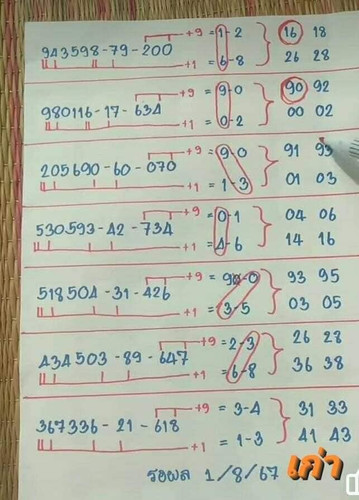 +9 = 1-2 16 18
943598-79-200
+1 = 6-8 26 28
+9 = 9-0 90 92
980116-17-634
+1 = 0-2 00 02
+9 = 9-0 91 93
205690-60-070
+1 = 1-3 01 03
+9 = 0-1 04 06
530593-42-734
+1 = 4-6 14 16
+9 = 9-0 93 95
518504-31-426
+1 = 3-5 03 05
+9 = 2-3 26 28
434503-89-647
+1 = 6-8 36 38
+9 = 3-4 31 33
367336-21-618
+1 = 1-3 41 43
รอผล 1/8/67 เก่า